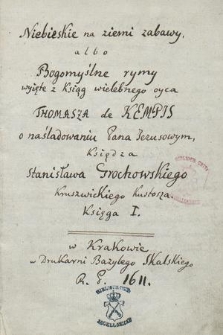 Niebieskie na ziemi zabawy,
albo
Bogomyślne rymy
wyięte z Ksiąg wielebnego oyca
THOMASZA de KEMPIS
o naśladowaniu Pana Jezusowym,
Księdza
Stanisława Grochowskiego
Kruszwickiego Kustosza.
Księga I.
w Krakowie
w Drukarni Bazylego Skalskiego
R. P. 1611.